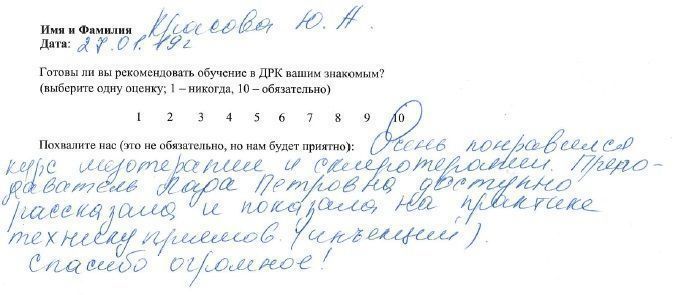 Имя и Фамилия Красова Ю. А.
Дата: 27.01.19г
Готовы ли вы рекомендовать обучение в ДРК вашим знакомым?
(выберите одну оценку; 1 – никогда, 10 – обязательно)
1 2 3 4 5 6 7 8 9 10
Похвалите нас (это не обязательно, но нам будет приятно): Очень понравился
курс мезотерапии и склеротерапии. Препо-
даватель Лара Петровна доступно
рассказала и показала на практике
технику приёмов. (инъекций).
Спасибо огромное!